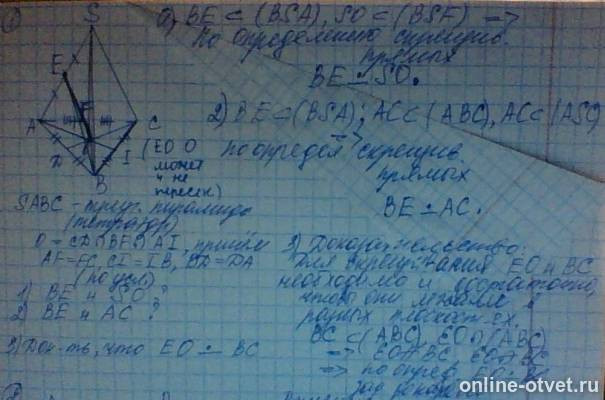 ①
S
E
F
A
C
D
I
B
(EO O
может
и не
пересек)
SABC - треуг. пирамида
(тетраэдр)
O = CD∩BF∩AI, причём
AF=FC, CI=IB, BD=DA
(по усл)
1) BE и SO ?
2) BE и AC ?
3) Док-ть, что EO ∸ BC
BE ⊂ (BSA), SO ⊂ (BSF) =>
по определению скрещив.
прямых
BE ∸ SO.
2) BE ⊂ (BSA); AC ⊂ (ABC), AC ⊂ (ASC)
=>
по определ скрещив
прямых
BE ∸ AC.
3) Доказательство:
Для скрещивания EO и BC
необходимо и достаточно,
чтобы они лежали в
разных плоскост-ях.
BC ⊂ (ABC), EO∩(ABC)
=>
=> по опред. EO ∸ BC
online-otvet.ru